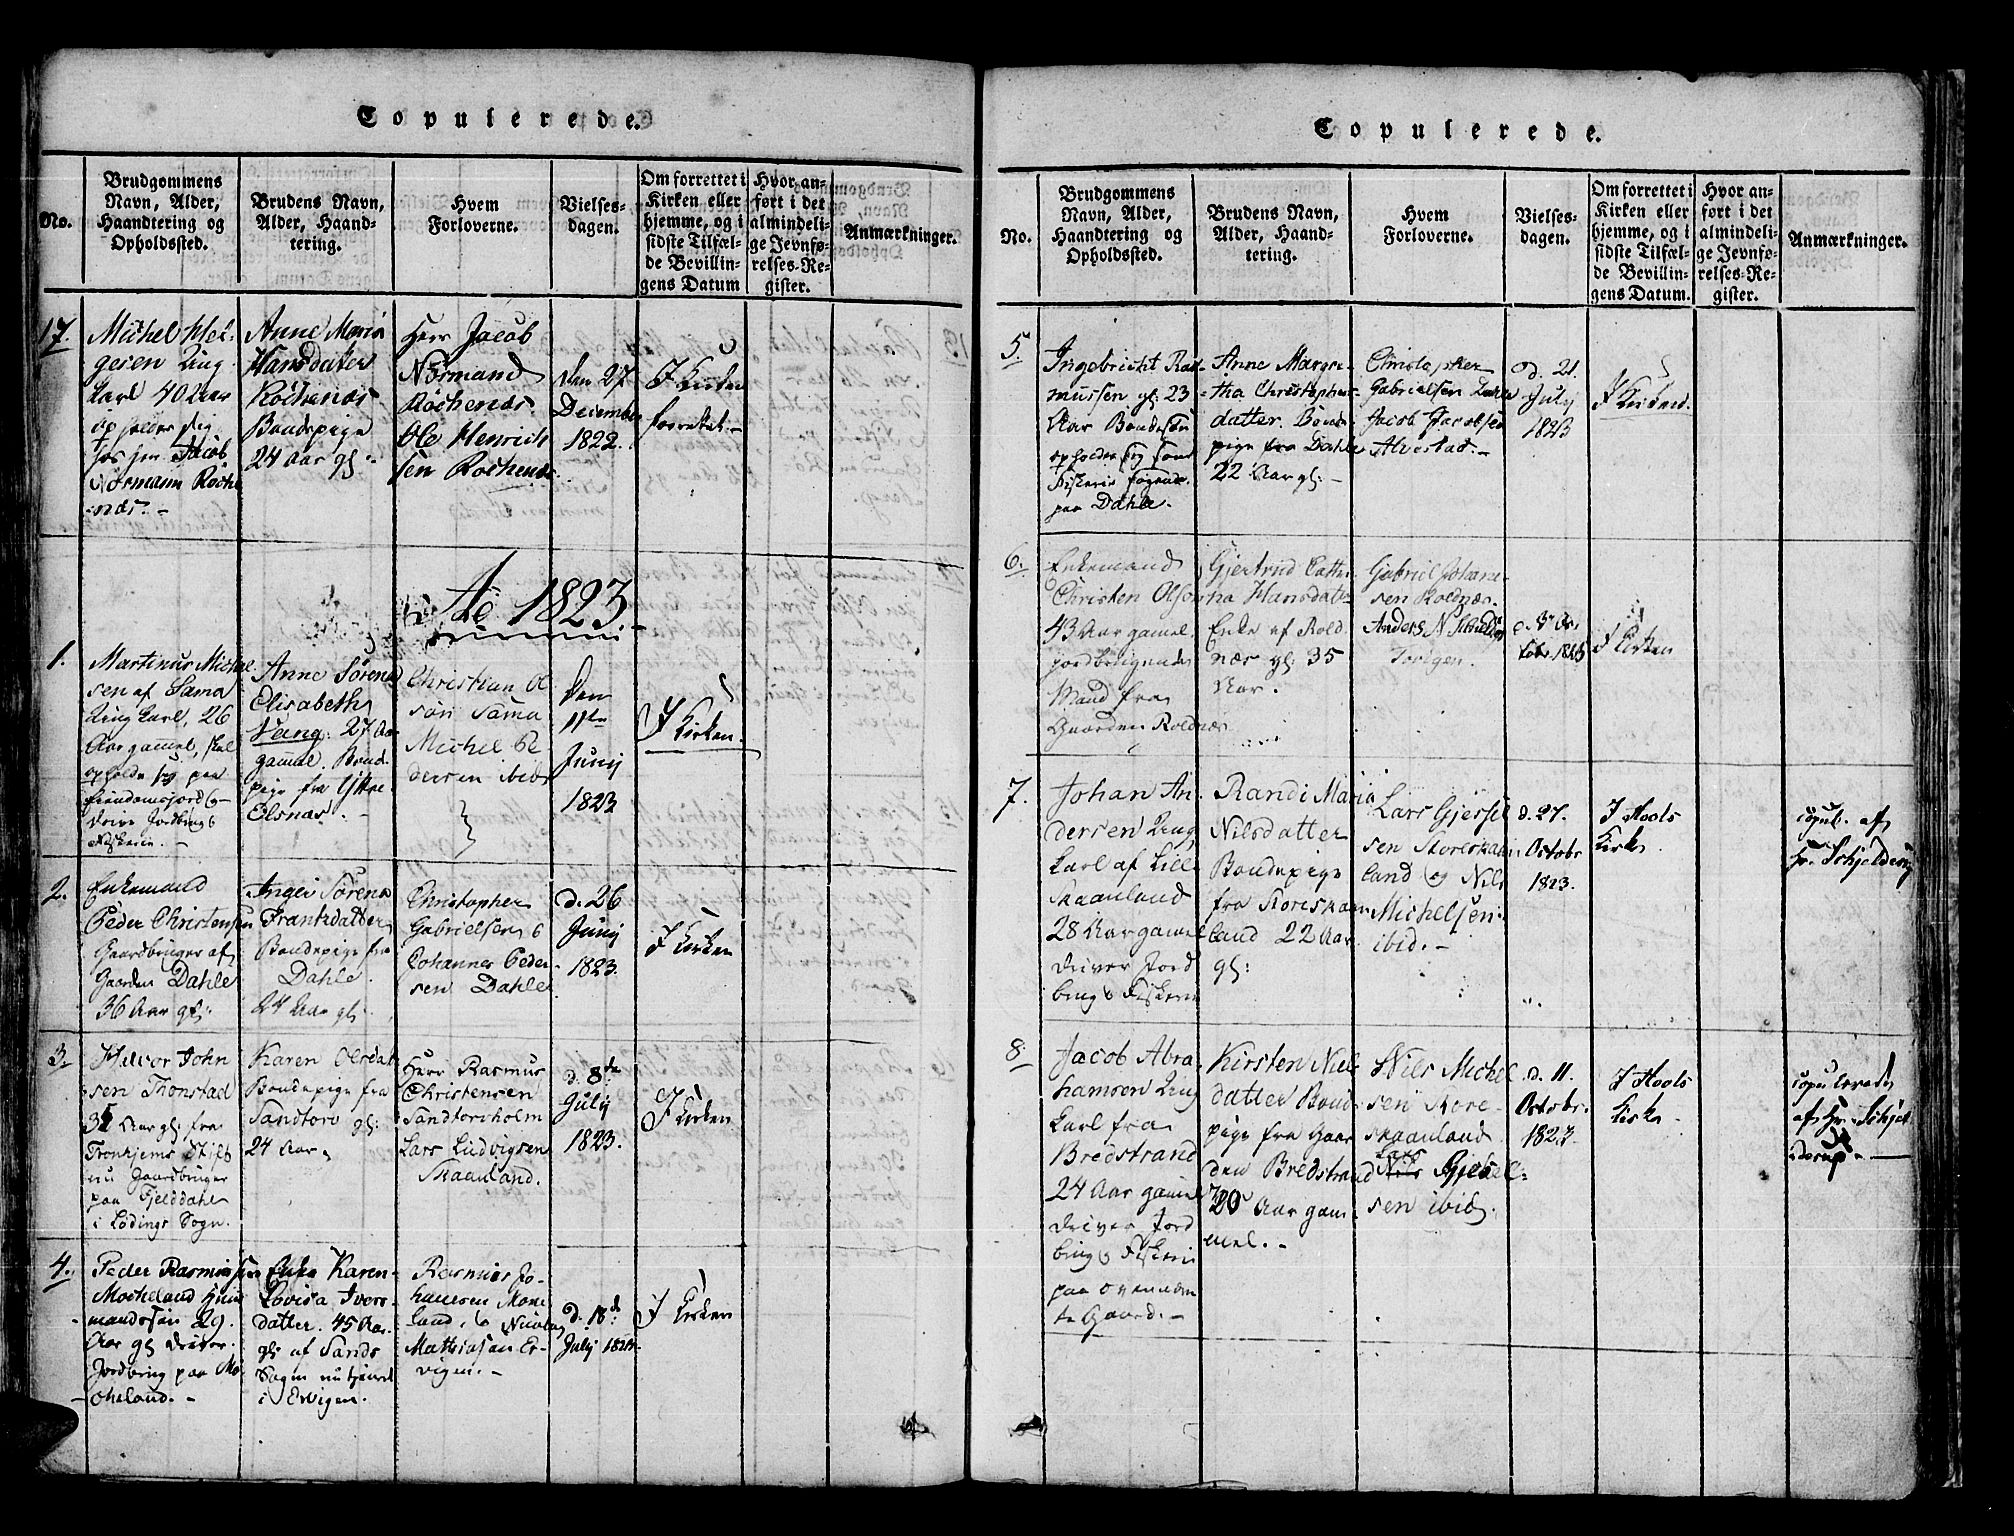 Copulerede.
No.
Brudgommens
Navn, Alder,
Haandtering og
Opholdssted.
Brudens Navn,
Alder, Haand-
tering.
Hvem
Forloverne.
Vielses-
dagen.
Om forrettet i
Kirken eller
hjemme, og i
sidste Tilfæl-
de Bevillin-
gens Datum
Hvor an-
ført i det
almindeli-
ge Jevnfø-
relses-Re-
gister.
Anmærkninger.
17.
Michel
gesen Ung
karl 40 Aar
opholder sig
hos hr Jacob
Normann Røche
næs.-
Anne Maria
Hansdatter
Rochenæs
Bondepige
24 Aar gl:
Herr Jacob
Normand
Rochenæs.
Ole Henrich
sen Rochenæs.
den 27
December
1822.
I Kirken
forrettet.-
Ao 1823.
1.
Martinus Michel
sen af Sama
Ung karl, 26
Aar gammel, skal
opholde sig paa
Eiendomsjord og
drive Jordbrug &
Fiskerie.-
Anne Sørena
Elisabeth
Vang: 27 Aar
gammel. Bonde
pige fra Yttre
Elsnæs.-
Christian Ol
søn Sama
Michel Pe
dersen ibid
Den
11te
Junij
1823
I Kirken.
2.
Enkemand
Peder Christensen
Gaardbruger af
Gaarden Dahle
36 Aar gl:
Inger Sørena
Frantzdatter
Bondepige fra
Dahle.
24 Aar gl.
Christopher
Gabrielsen &
Johannes Peder
sen Dahle
d. 26
Junij
1823.
I Kirken
3.
Halvor John
sen Thonstad
35 Aar gl: fra
Tronhjems Stift
nu Gaardbruger
paa Fjelddahl
i Lødings Sogn.
Karen Olsdat
Bondepige fra
Sandtorv gl:
24 Aar.
Herr Rasmus
Christensen
Sandtorvholm
Lars Ludvigsen
Skaanland.
d. 8de
July
1823.
I Kirken
4.
Peder Rasmussen
Mocheland Huus
mandssøn 29.
Aar gl driver
Jordbrug paa Mo
cheland.-
Enke Karen
Lovisa Ivers
datter. 45 Aar.
gl: af Sands
Sogn nu tjenende
i Ervigen.
Rasmus Jo-
hannesen Moche
land, & Nicolay
Mathiasen Er-
vigen.-
d. 18de
July 1823.
I Kirken
Copulerede.
No.
Brudgommens
Navn, Alder,
Haandtering og
Opholdssted.
Brudens Navn,
Alder, Haand-
tering.
Hvem
Forloverne.
Vielses-
dagen.
Om forrettet i
Kirken eller
hjemme, og i
sidste Tilfæl-
de Bevillin-
gens Datum.
Hvor an-
ført i det
almindeli-
ge Jevnfø-
relses-Re-
gister.
Anmærkninger.
5.
Ingebricht Ras
mussen gl: 23
Aar
opholder sig som
Fiskerie søgende
paa Dahle.
Anne Margre-
tha Christopher
datter. Bonde
pige fra Dahle
22 Aar gl:-
Christopher
Gabrielsen Dahle
Jacob Jacobsen
Alvestad.-
d. 21.
July
1823
I Kirken.
6.
Enkemand
Christen Olsøn
43 Aar gamel,
jordbrugende
Mand fra
Gaarden Roldnæs
Gjertrud Catha
rina Hansdatr
Enke af Rold
næs gl: 35
Aar.
Gabriel Johane-
sen Roldnæs.
Anders N
d. 8de Oc
tobr. 1823
I Kirken
7.
Johan An
dersen Ung
karl af Lill
Skaanland
28 Aar gamel
driver Jord
brug & Fiskerie
Randi Maria
Nilsdatter
Bondepige
fra Storeskaan
land 22 Aar
gl:
Lars Gjersel
sen Storeskaan
land og Nils
Michelsen
ibid.-
d. 27.
Octobr
1823.
I Hools
Kirke
copul. af
hr. Schjelderup
8.
Jacob Abra
hamsen Ung
karl fra
Bredstrand
24 Aar gamel
driver Jord
brug & Fiskerie
paa ovennævn
te Gaard.-
Kirsten Niel
datter Bonde
pige fra Gaar
den Bredstrand
20 Aar gam
mel.-
Nils Michel
sen Store-
skaanland
Lars
Gjersel
sen ibid.
d. 11.
Octobr.
1823.
I Hools
Kirke
copulerede
af Hr. Schjel
derup.-